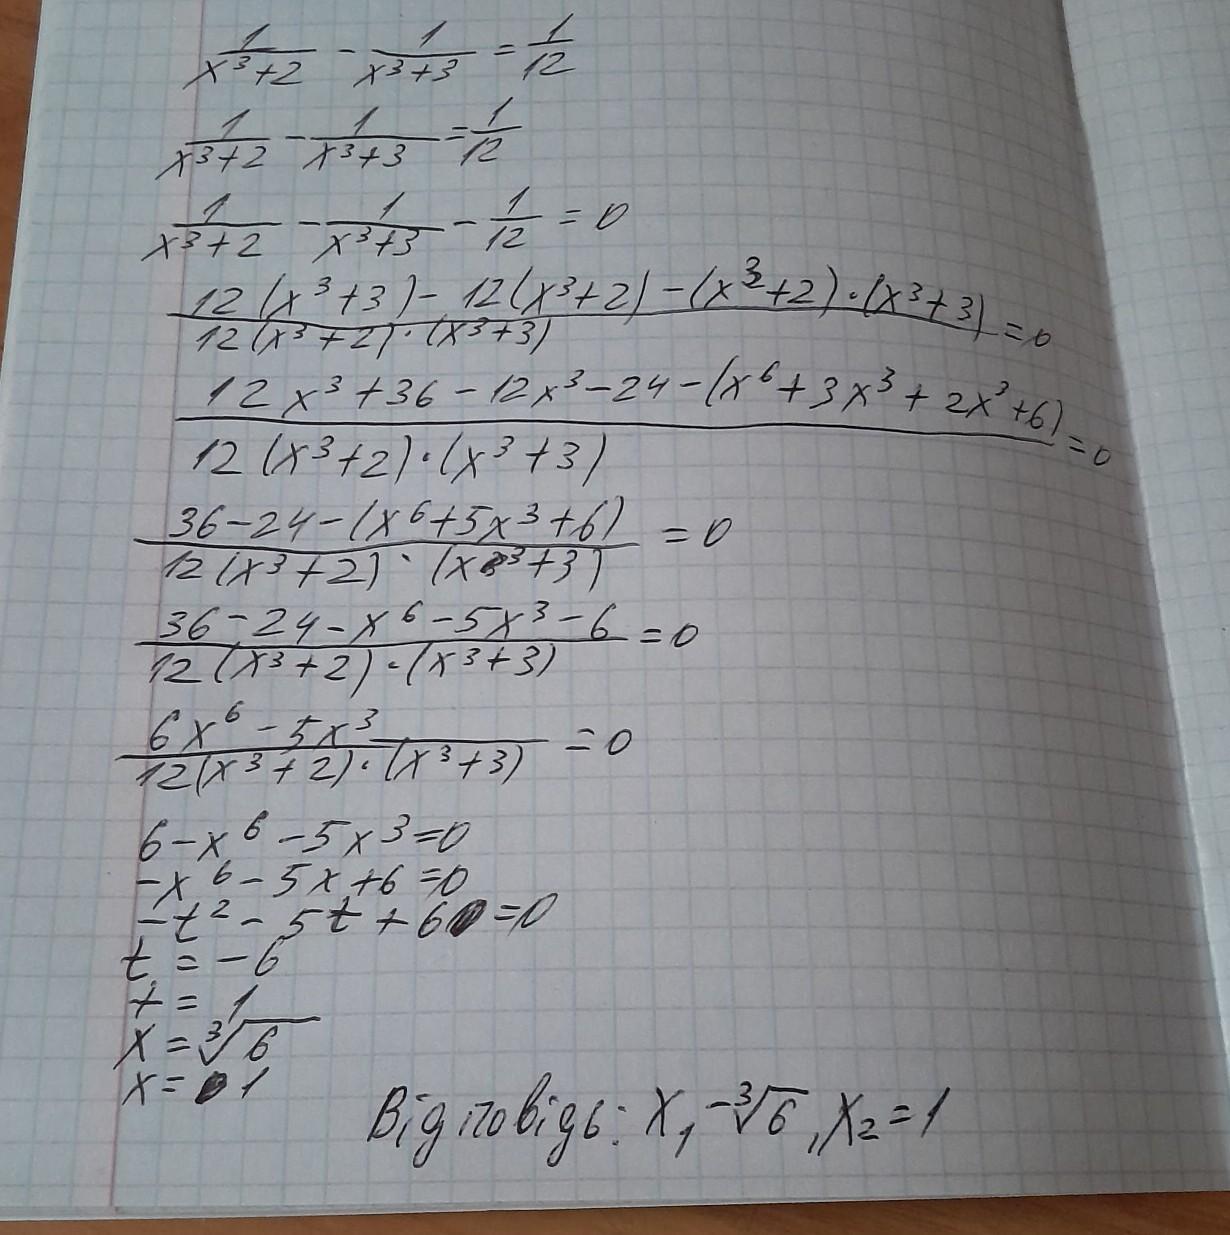 1/(x³+2) - 1/(x³+3) = 1/12
1/(x³+2) - 1/(x³+3) = 1/12
1/(x³+2) - 1/(x³+3) - 1/12 = 0
(12(x³+3) - 12(x³+2) - (x³+2)·(x³+3))/(12(x³+2)·(x³+3)) = 0
(12x³+36-12x³-24-(x⁶+3x³+2x³+6))/(12(x³+2)·(x³+3)) = 0
(36-24-(x⁶+5x³+6))/(12(x³+2)·(x³+3)) = 0
(36-24-x⁶-5x³-6)/(12(x³+2)·(x³+3)) = 0
(6x⁶-5x³)/(12(x³+2)·(x³+3)) = 0
6-x⁶-5x³=0
-x⁶-5x+6=0
-t²-5t+6=0
t=-6
t=1
x=∛6
x=1
Відповідь: x₁-∛6, x₂=1